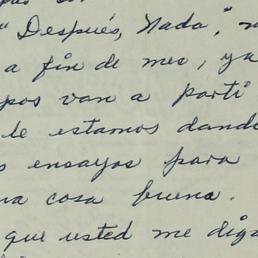 "Después, Nada,"
a fin de mes, ya
pos van a parti
le estamos dando
s ensayos para
na cosa buena.
que usted me diga